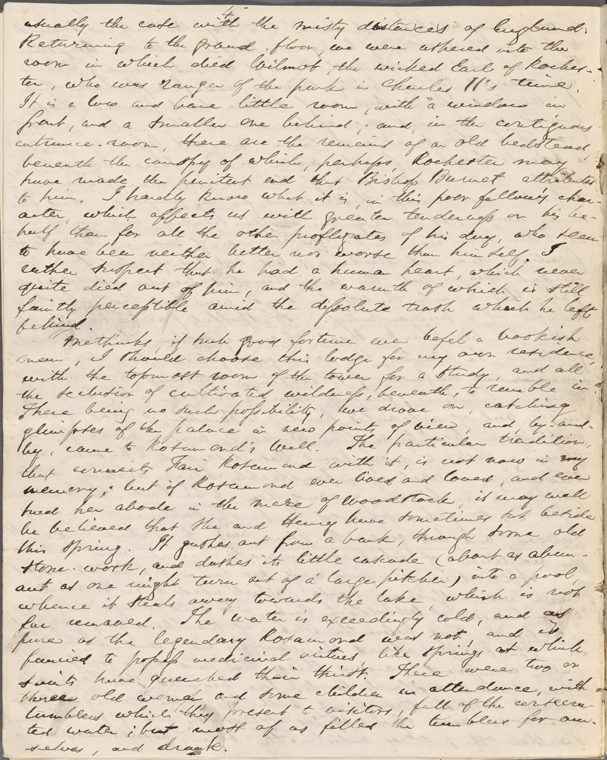 4
usually the case with the misty distances of England.
Returning to the ground-floor, we were ushered into the
room in which died Wilmot, the wicked Earl of Roches-
ter, who was ranger of the park in Charles II's time.
It is a low and bare little room, with a window in
front, and a smaller one behind; and, in the contiguous
entrance-room, there are the remains of an old bedstead
beneath the canopy of which, perhaps, Rochester may
have made the penitent end that Bishop Burnet attributes
to him. I hardly know what it is, in this poor fellow's char-
acter, which affects us with greater tenderness on his be-
half than for all the other profligates of his day, who seem
to have been neither better nor worse than himself. I
rather suspect that he had a human heart, which never
quite died out of him, and the warmth of which is still
faintly perceptible amid the dissolute trash which he left
behind.
Methinks, if such good fortune ever befel a bookish
man, I should choose this lodge for my own residence,
with the topmost room of the tower for a study, and all
the seclusion of cultivated wildness, beneath, to ramble in.
There being no such possibility, we drove on, catching
glimpses of the palace in new points of view, and, by-and-
by, came to Rosamond's Well. The particular tradition
that connects Fair Rosamond with it, is not now in my
memory; but if Rosamond ever lived and loved, and ever
had her abode in the maze of Woodstock, it may well
be believed that she and Henry have sometimes sat beside
this spring. It gushes out from a bank, through some old
stone-work, and dashes its little cascade (about as abun-
ant as one might turn out of a large pitcher) into a pool,
whence it steals away towards the lake, which is not
far removed. The water is exceedingly cold, and as
pure as the legendary Rosamond was not, and is
fancied to possess medicinal virtues, like springs at which
saints have quenched their thirst. There were two or
three old women and some children in attendance, with
tumblers which they present to visitors, full of the consecra-
ted water; but most of us filled the tumblers for our-
selves, and drank.